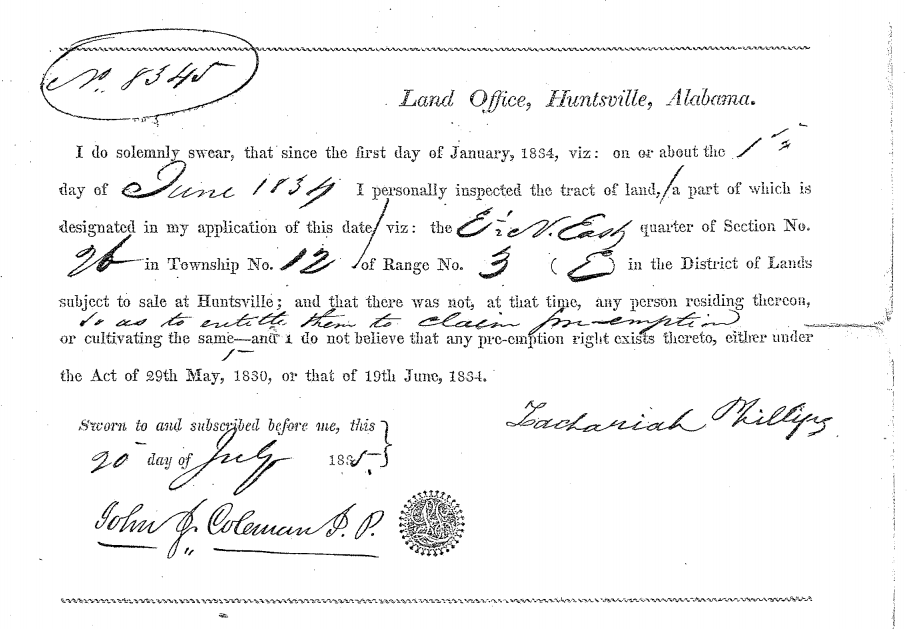 No. 8345
Land Office, Huntsville, Alabama.
I do solemnly swear, that since the first day of January, 1834, viz: on or about the 1st
day of June 1834 I personally inspected the tract of land, a part of which is
designated in my application of this date, viz: the E½ N. East quarter of Section No.
26 in Township No. 12 of Range No. 3 (E) in the District of Lands
subject to sale at Huntsville; and that there was not, at that time, any person residing thereon,
so as to entitle them to claim pre-emption
or cultivating the same—and I do not believe that any pre-emption right exists thereto, either under
the Act of 29th May, 1830, or that of 19th June, 1834.
Zachariah Phillips
Sworn to and subscribed before me, this
20 day of July 1835.
John J. Coleman J. P.